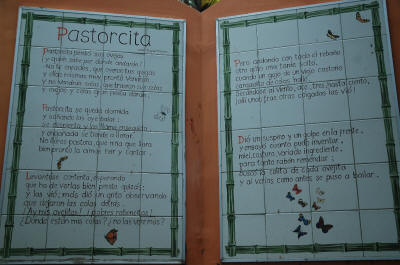 Pastorcita
Pastorcita perdió sus ovejas
¡y quién sabe por dónde andarán!
-No te enfades, que oyeron tus quejas
y ellas mismas muy pronto vendrán
y no vendrán solas, que traerán sus colas
y ovejas y colas gran fiesta darán.
Pastorcita se queda dormida
y soñando las oye balar;
se despierta y las llama enseguida
y engañada se tiende a llorar.
No llores, pastora, que niña que llora
bien pronto la oímos reír y cantar.
Levantóse contenta, esperando
que ha de verlas bien presto quizás;
y las vió; mas dió un grito observando
que dejaran las colas detrás.
¡Ay mis ovejitas! ¡pobres raboncitas!
¿Dónde están mis colas? ¿no las veré más?
Pero andando con todo el rebaño
otro grito una tarde soltó,
cuando un gajo de un viejo castaño
cargadito de colas halló.
Secándose al viento, dos, tres, hasta ciento,
¡allí unas tras otras colgadas las vió!
Dió un suspiro y un golpe en la frente,
y ensayó cuanto pudo inventar,
miel, costura, variado ingrediente,
para tanto rabón remendar;
buscó la colita de cada ovejita
y al verlas como antes se puso a bailar.